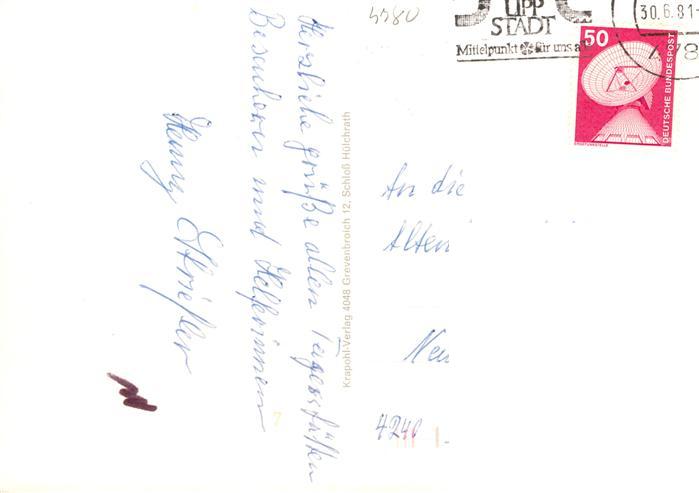 Herzliche Grüße allen Tagesstätten
Besuchern und Helferinnen
Henny
5580
LIPP
STADT
Mittelpunkt für uns a
30.6.81-
478
50
DEUTSCHE BUNDESPOST
ERDEFUNKSTELLE
Krapohl-Verlag 4048 Grevenbroich 12, Schloß Hülchrath
An die
Alten
Neu
4240